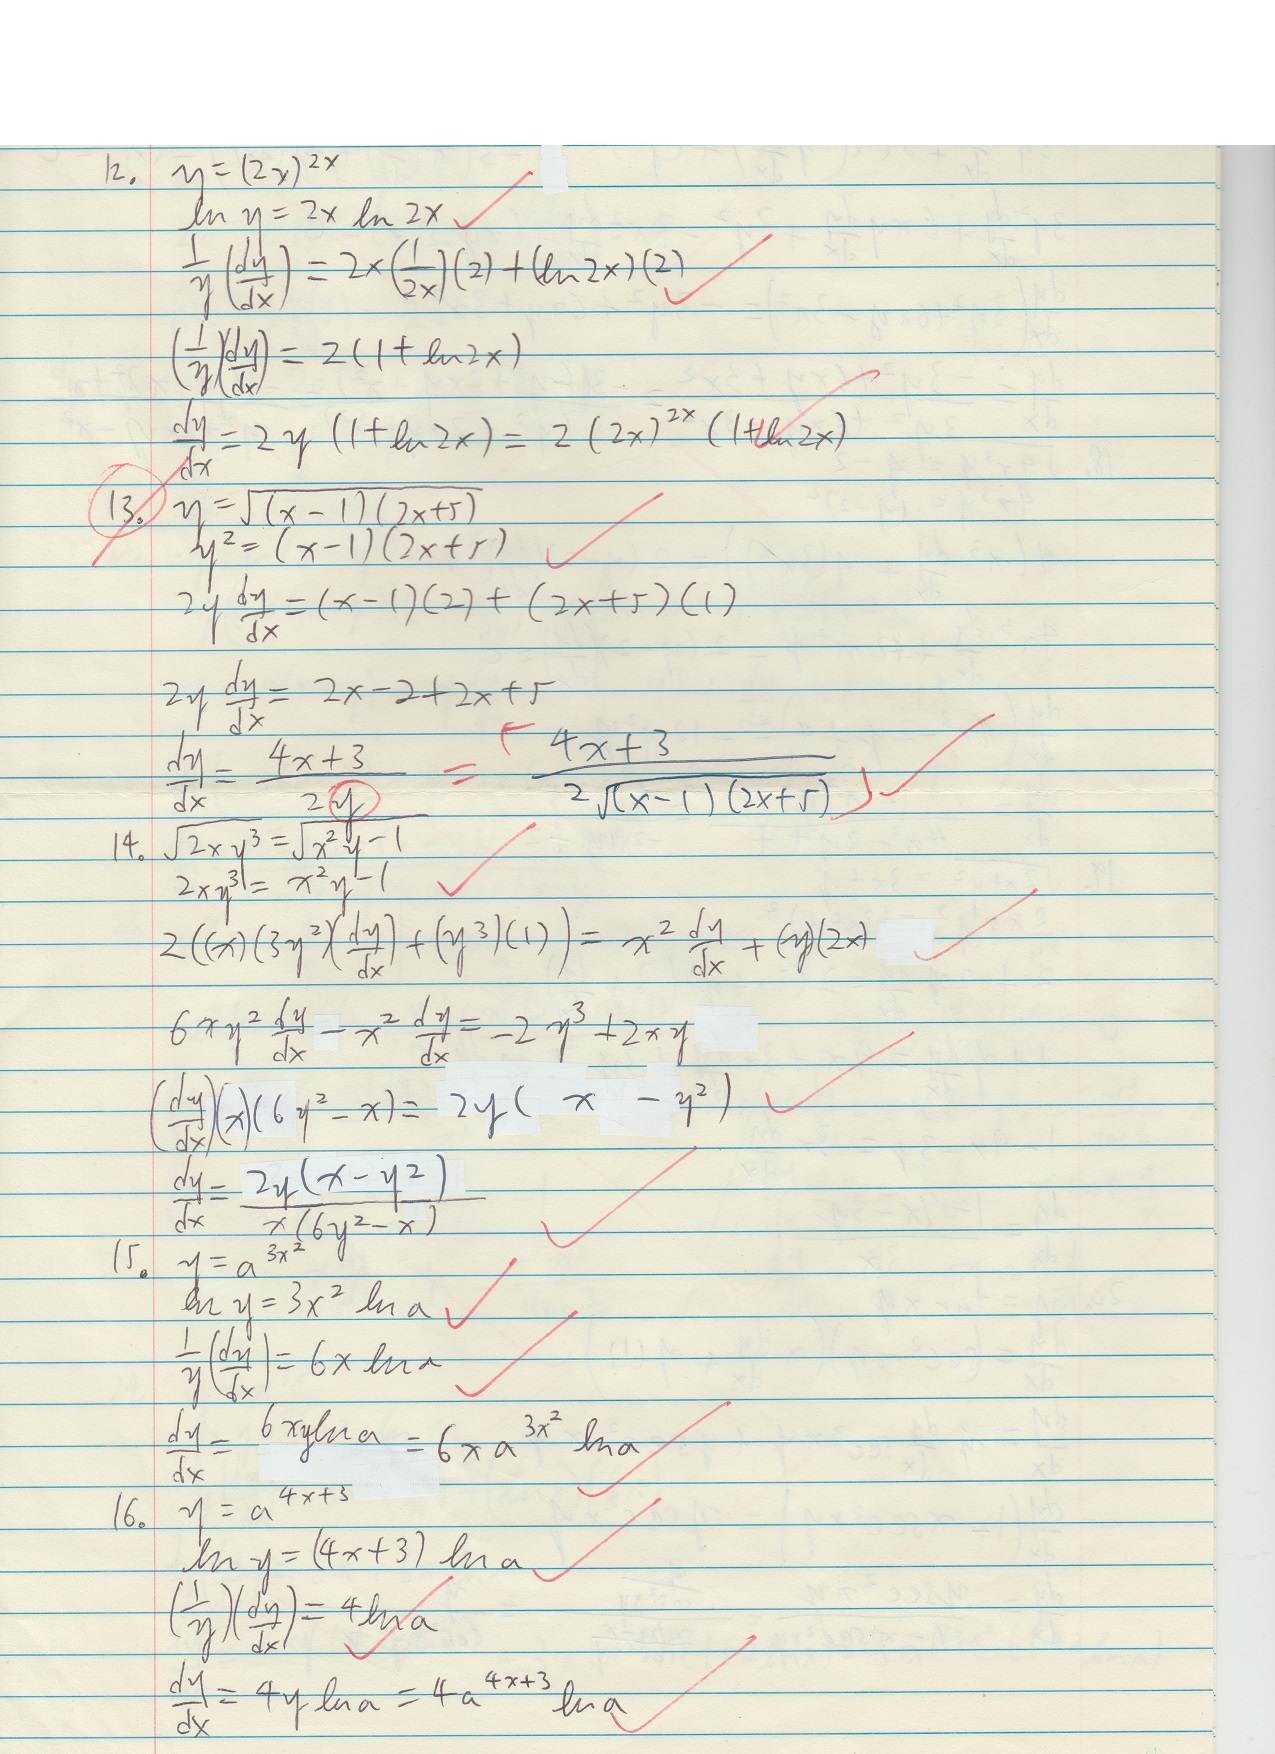 12. y = (2x)^2x
ln y = 2x ln 2x
1/y (dy/dx) = 2x(1/2x)(2) + (ln 2x)(2)
(1/y)(dy/dx) = 2(1 + ln 2x)
dy/dx = 2y (1 + ln 2x) = 2 (2x)^2x (1 + ln 2x)
13. y = √((x-1)(2x+5))
y² = (x-1)(2x+5)
2y dy/dx = (x-1)(2) + (2x+5)(1)
2y dy/dx = 2x-2+2x+5
dy/dx = (4x+3)/(2y) = [(4x+3)/(2√((x-1)(2x+5)))]
14. √(2xy³) = √(x²y-1)
2xy³ = x²y-1
2((x)(3y²)(dy/dx) + (y³)(1)) = x² dy/dx + (y)(2x)
6xy² dy/dx - x² dy/dx = -2y³ + 2xy
(dy/dx)(x)(6y² - x) = 2y( x - y²)
dy/dx = 2y(x-y²)/x(6y²-x)
15. y = a^3x²
ln y = 3x² ln a
1/y (dy/dx) = 6x ln a
dy/dx = 6xy ln a = 6x a^3x² ln a
16. y = a^4x+3
ln y = (4x+3) ln a
(1/y)(dy/dx) = 4 ln a
dy/dx = 4y ln a = 4a^4x+3 ln a